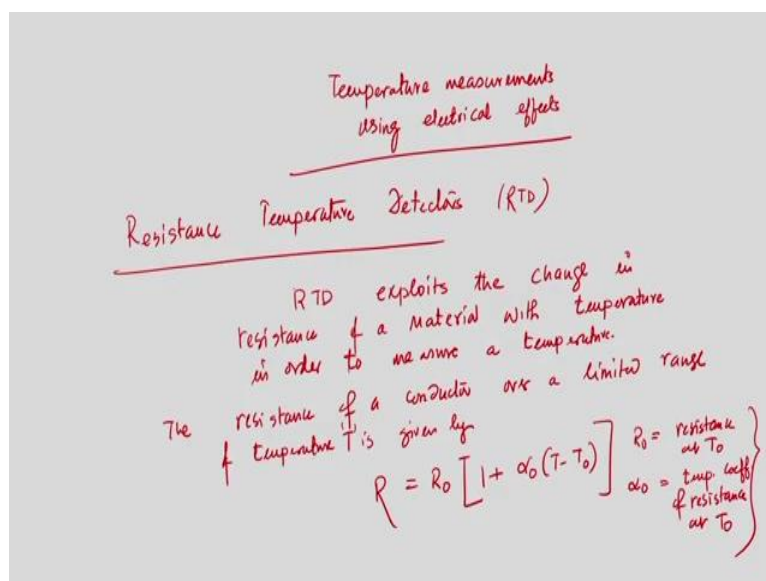 Temperature measurements
using electrical effects
Resistance Temperature Detectors (RTD)
RTD exploits the change in
resistance of a material with temperature
in order to measure a temperature.
The resistance of a conductor over a limited range
of temperature T is given by
R = R₀ [1 + α₀ (T - T₀)]
R₀ = resistance
at T₀
α₀ = temp. coeff
of resistance
at T₀